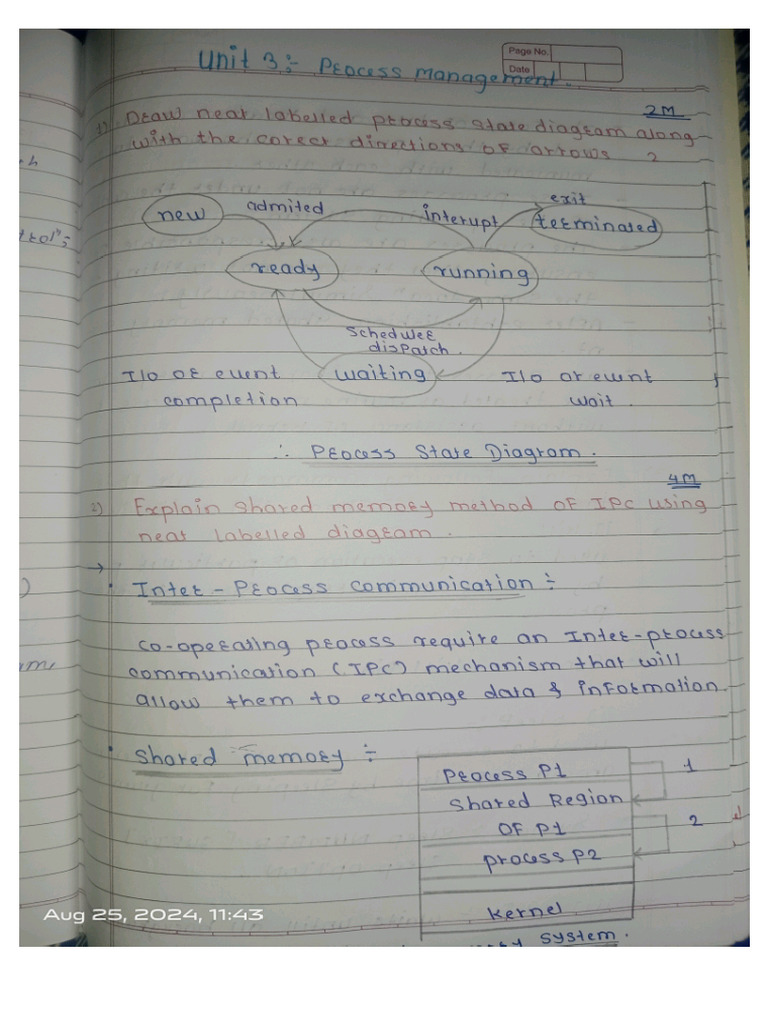 Page No.
Date
Unit 3:- Process Management.
2M
1) Draw neat labelled process state diagram along
with the corect directions of arrows ?
new
admited
interupt
exit
terminated
ready
running
scheduler
dispatch.
I/o or event
completion
waiting
I/o or event
wait.
∴ Process State Diagram.
4M
2) Explain shared memory method of IPC using
neat labelled diagram.
→
• Inter-Process communication :-
co-operating process require an Inter-process
communication (IPC) mechanism that will
allow them to exchange data & information
• Shared memory :-
Process P1
1
Shared Region
OF P1
2
process P2
Kernel
system.
Aug 25, 2024, 11:43